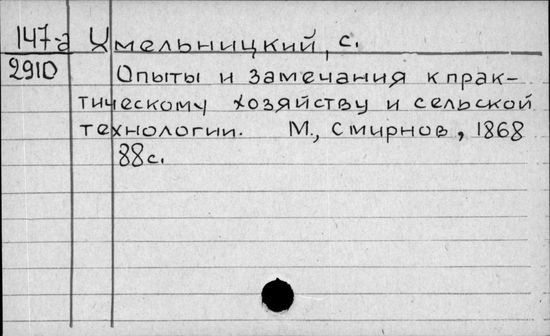 147-а Хмельницкий, С.
2910 Опыты и замечания к прак-
тическому хозяйству и сельской
технологии. М., Смирнов, 1868
88с.